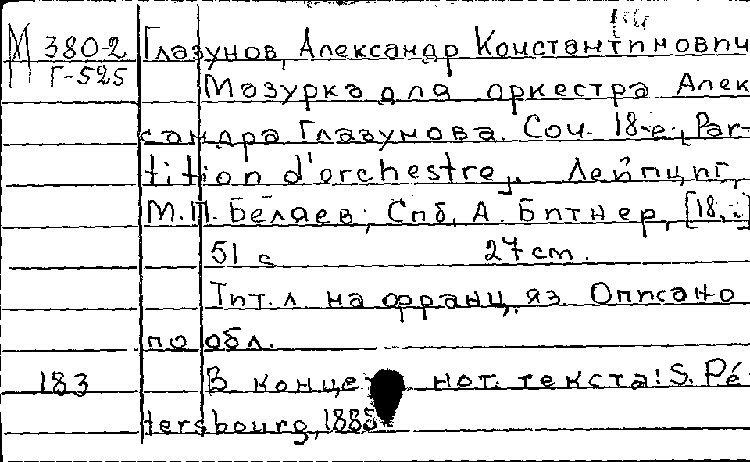 М 380-2
Г-525
Глазунов, Александр Константинович
Мазурка для оркестра Алек
сандра Глазунова. Соч. 18-е. Par-
tition d'orchestre, Лейпциг,
М.П. Беляев; Спб, А. Битнер,
51 с 27 cm.
Тит. л на франц. яз. Описано
по обл.
183 В конце нот. текста: S. Pé-
tersbourg, 1888